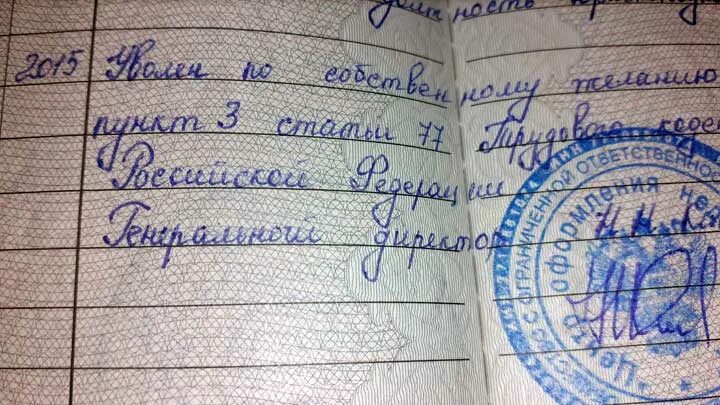 должность юриск
2015 Уволен по собственному желанию
пункт 3 статьи 77 Трудового кодек
Российской Федерации
Генеральный директор Н.Н.
С ОГРАНИЧЕННОЙ ОТВЕТСТВЕННОС
оформления